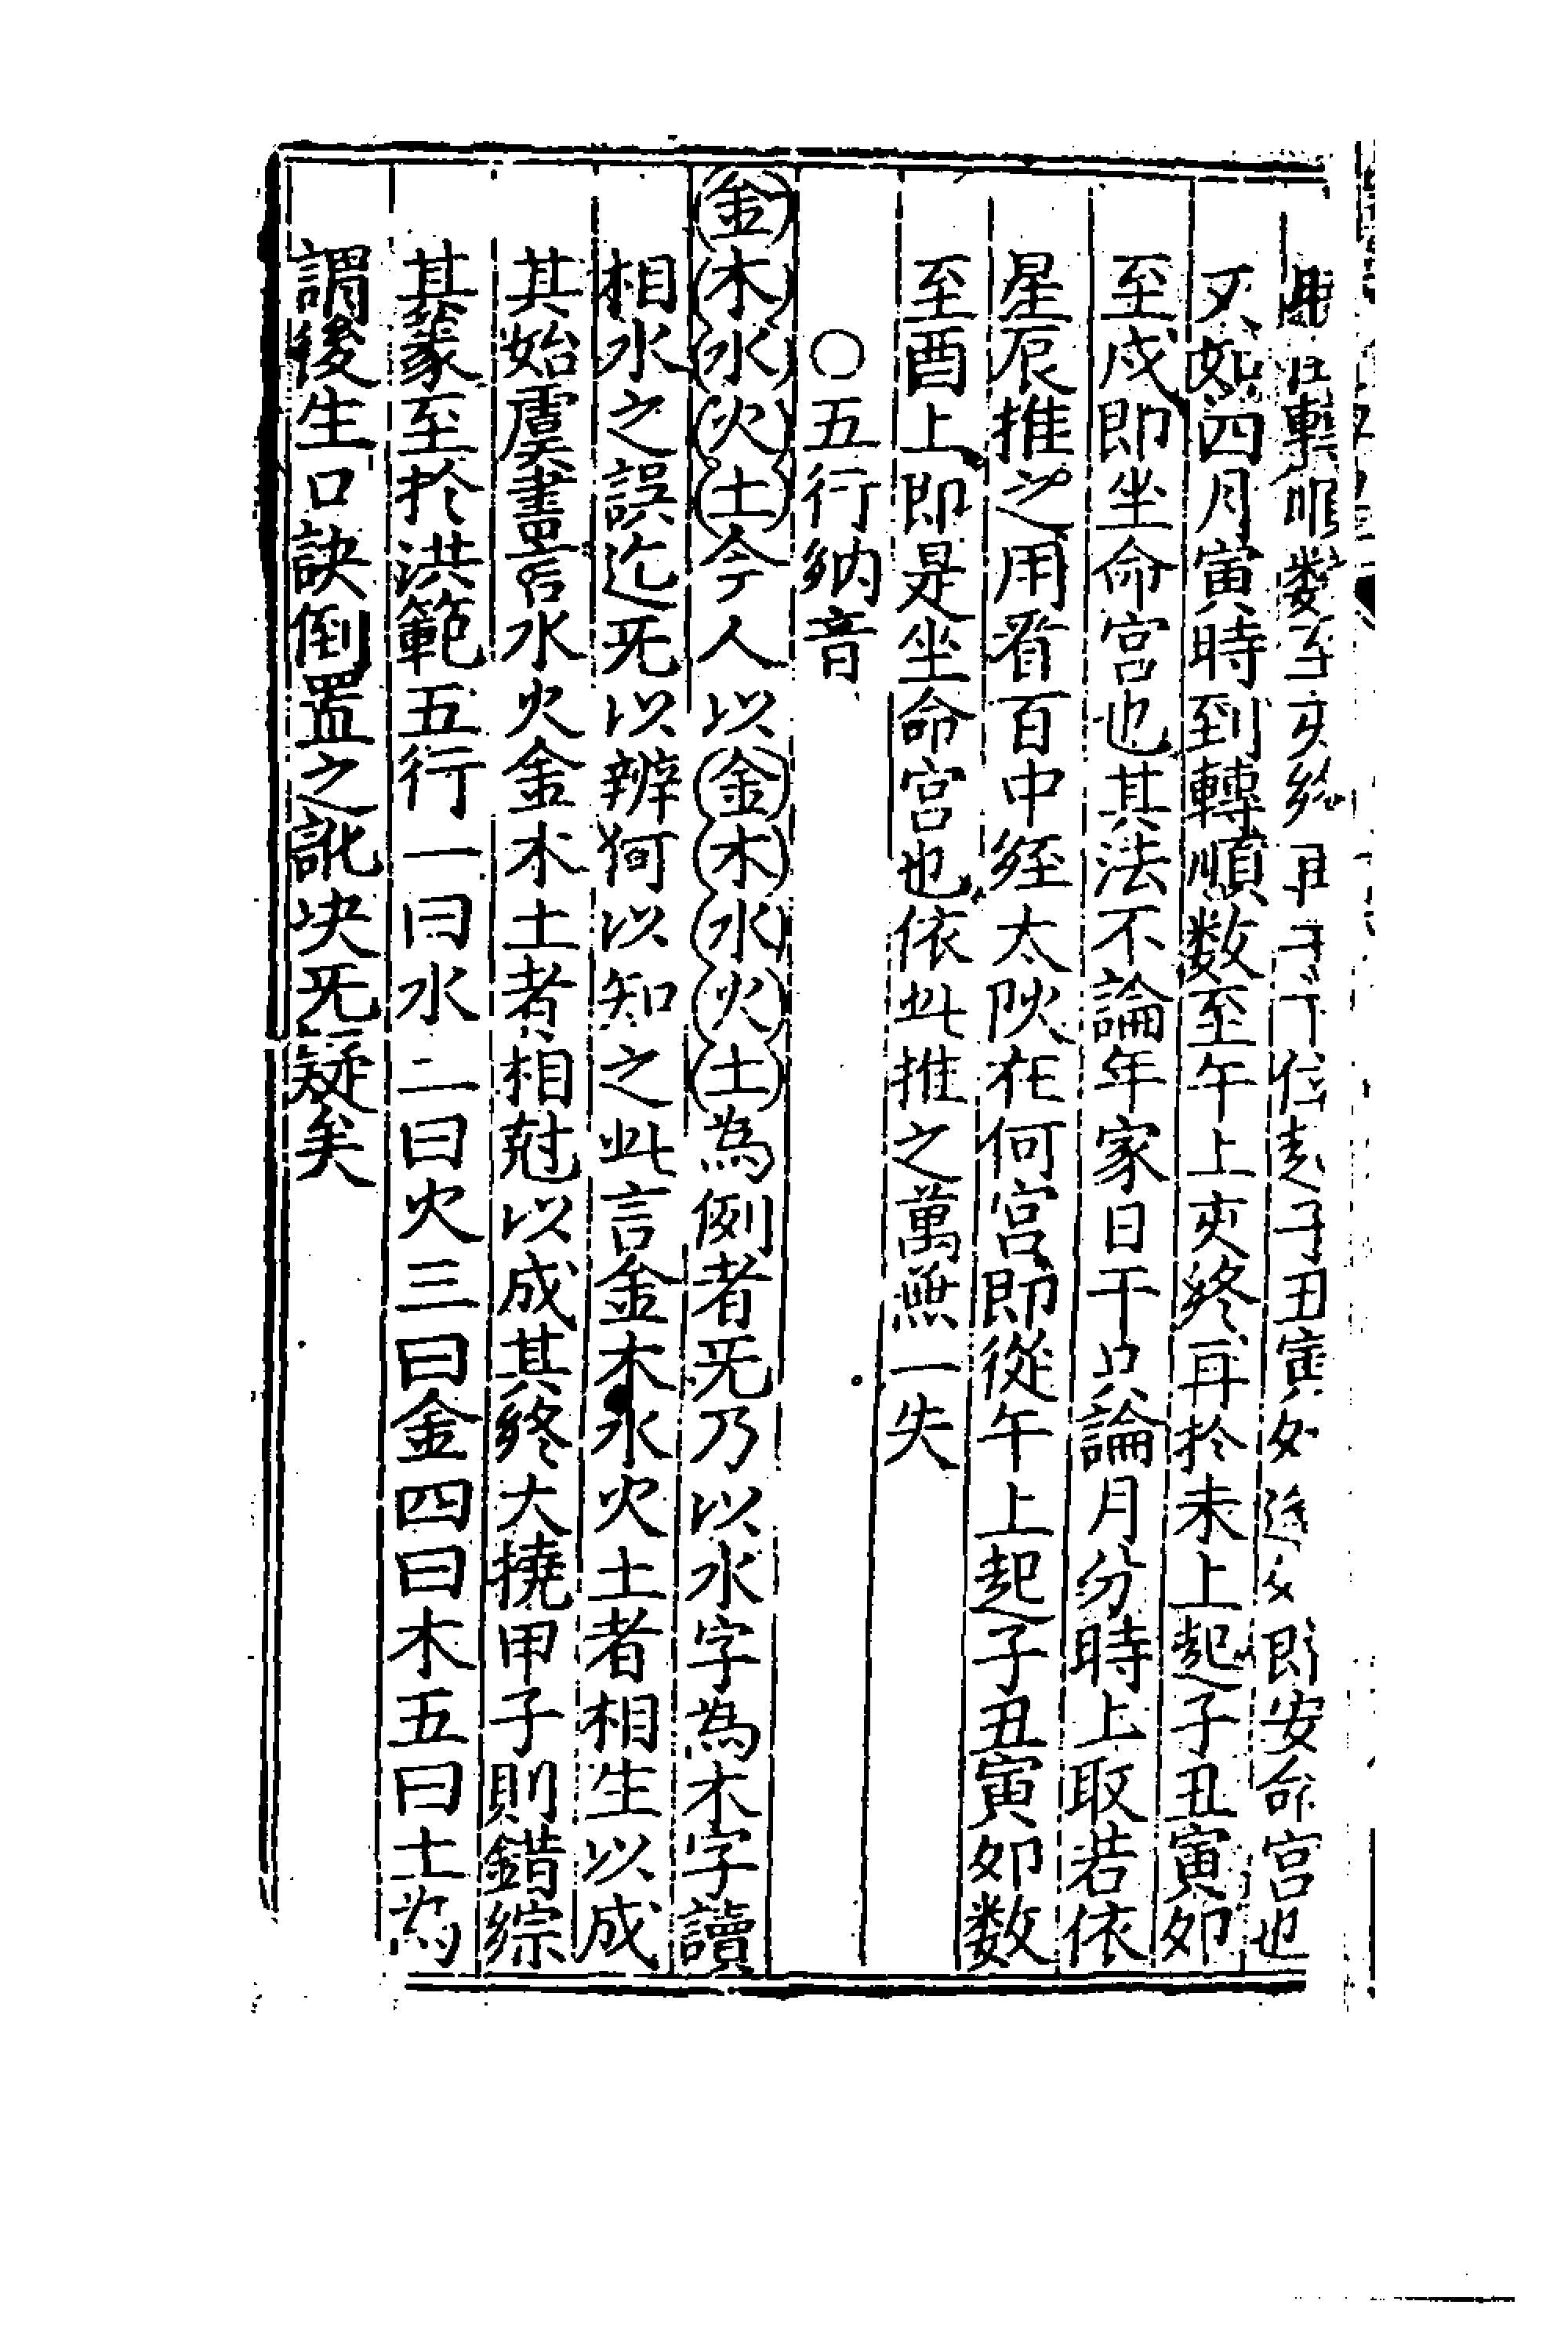 轉順数至亥終再子上起子丑寅卯逆女即安命宫也
又如四月寅時到轉順数至午上亥終再扵未上起子丑寅卯
至戍即坐命宫也其法不論年家日干只論月分時上取若依
星辰推之用看百中經太陽在何宫即從午上起子丑寅卯数
至酉上即是坐命宫也依此推之萬無一失
○五行納音
金木水火土今人以金木水火土為例者旡乃以水字為木字讀
相水之誤迄旡以辨何以知之此言金木水火土者相生以成
其始虞書言水火金木土者相尅以成其終大撓甲子則錯綜
其篆至扵洪範五行一曰水二曰火三曰金四曰木五曰土為
謂後生口訣倒置之訛决旡疑矣